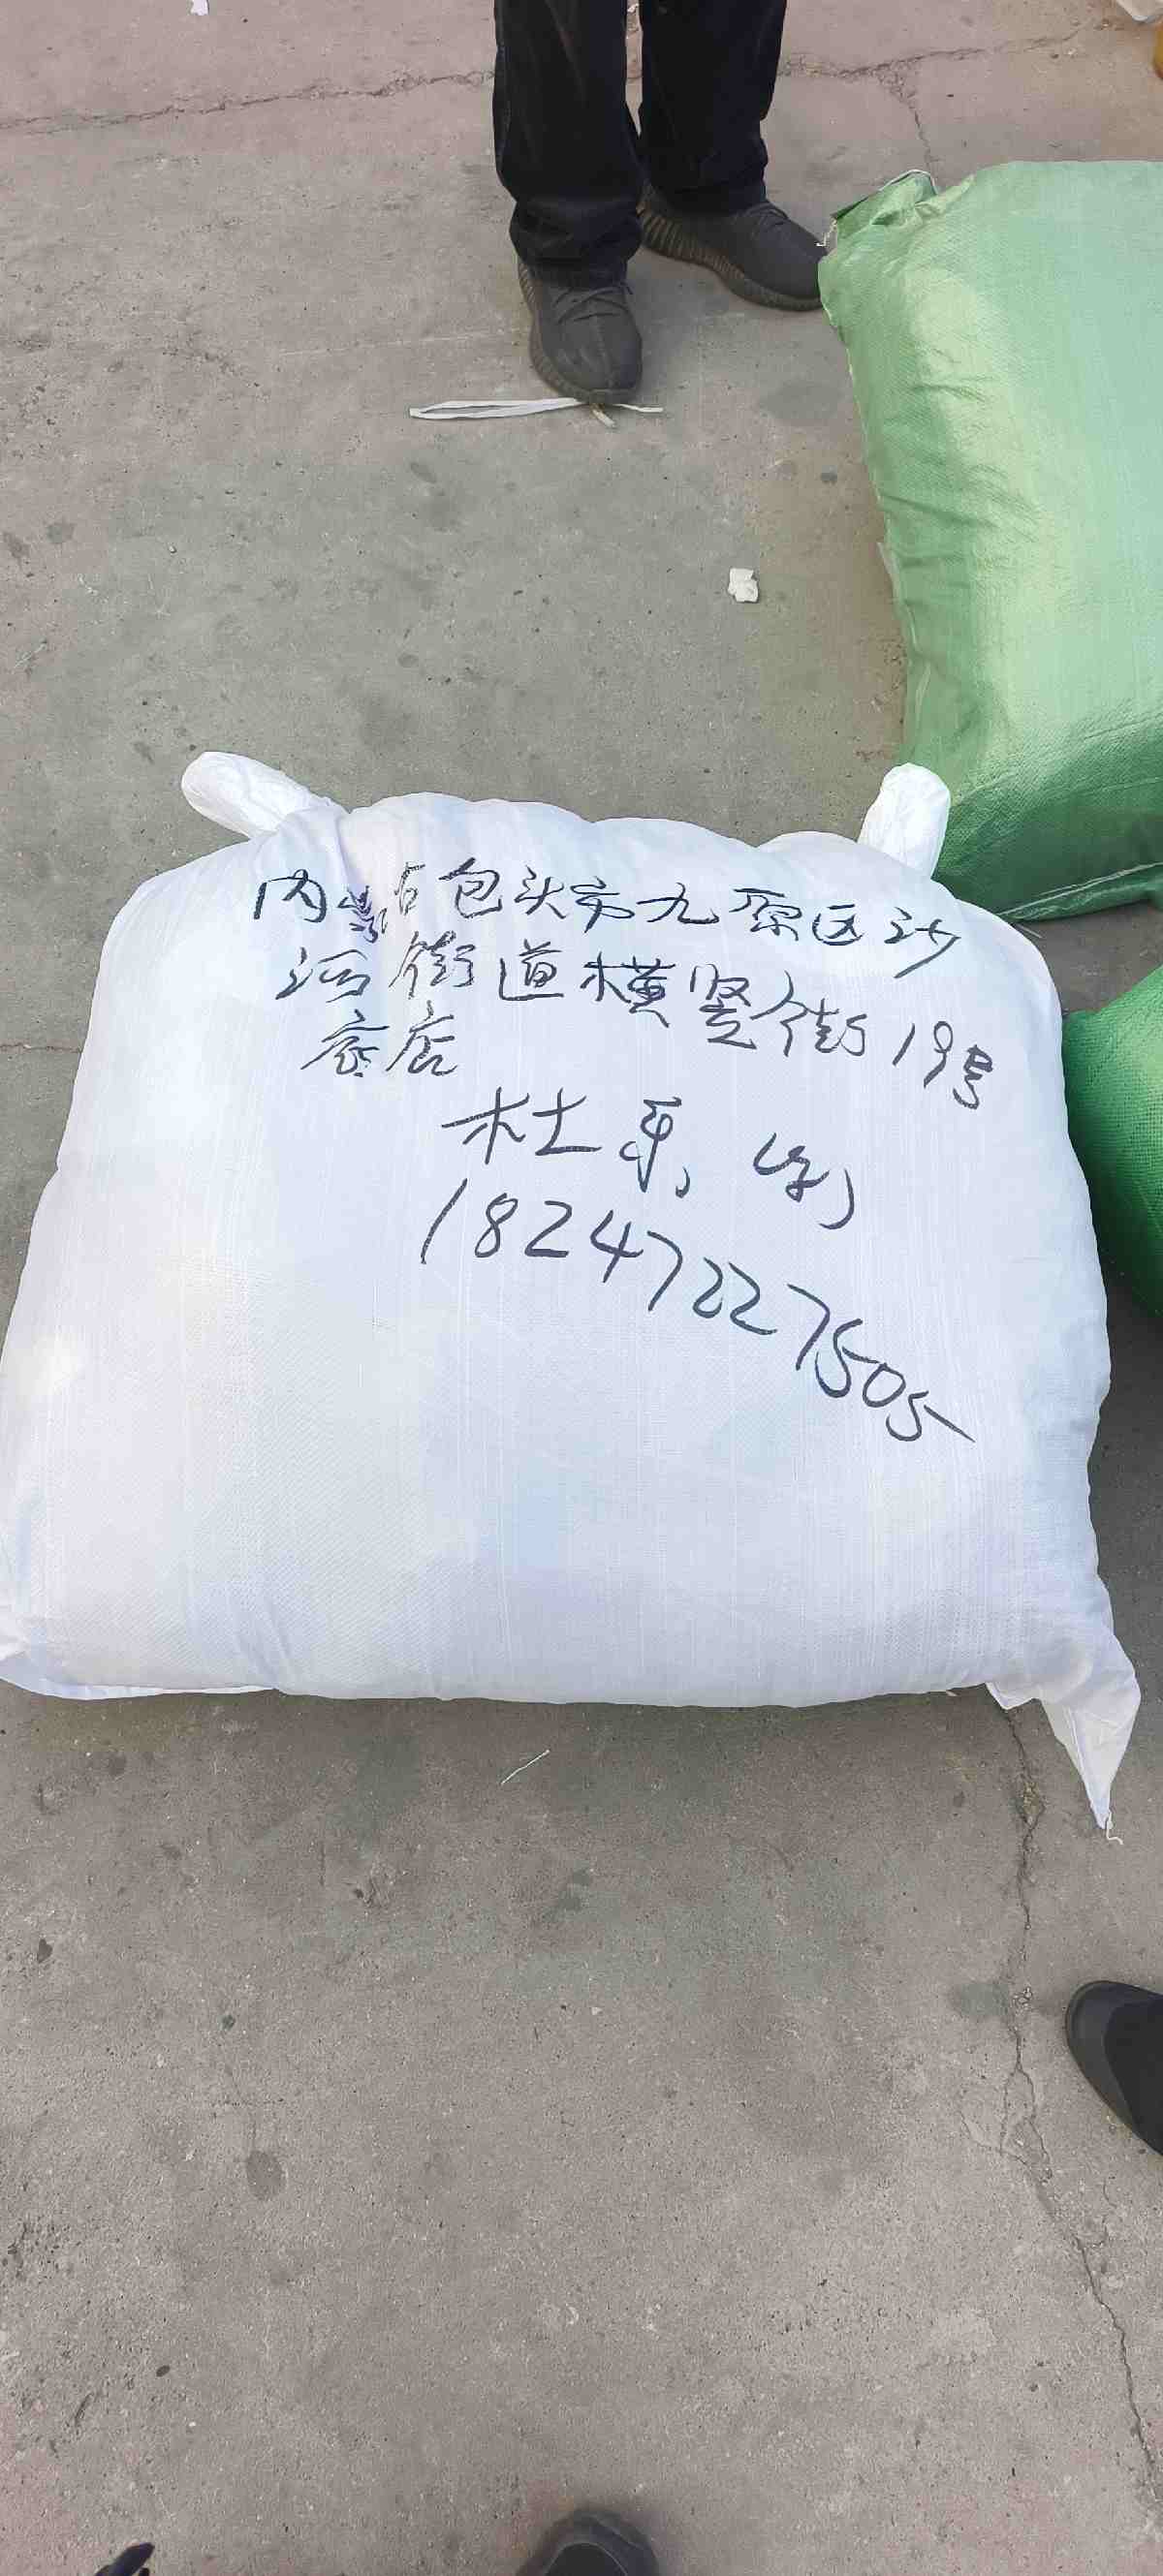 内蒙古包头市九原区沙
河街道横竖街19号
底店
杜平 (收)
18247227505